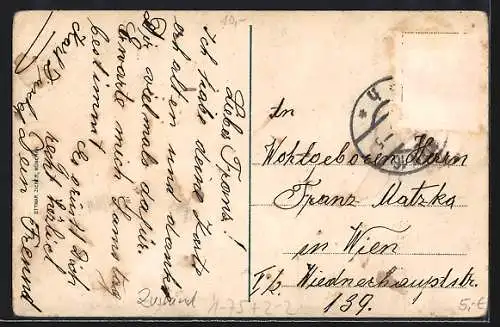 10,-
Lieber Franz!
Ich habe deine Karte
erhalten und danke
Dir vielmals dafür.
Erwarte mich Samstag
bestimmt
Es grüßt Dich
recht herzlich
Dein Freund
An
Wohlgeboren Herrn
Franz Matzka
in Wien
Wiednerhauptstr.
139.
Zustand
5,-€